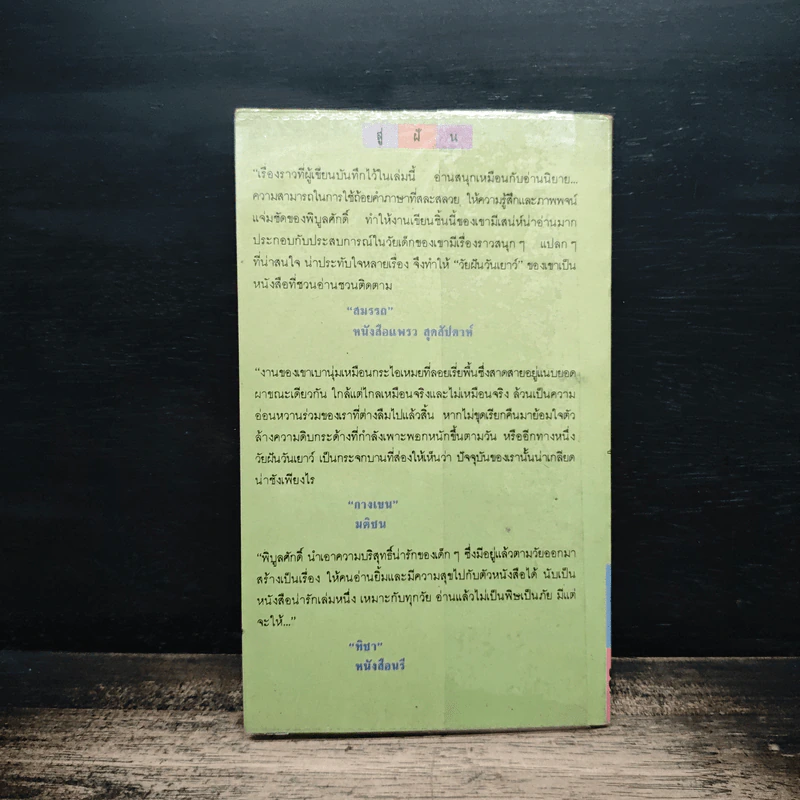 สู่ ฝั น
“เรื่องราวที่ผู้เขียนบันทึกไว้ในเล่มนี้ อ่านสนุกเหมือนกับอ่านนิยาย...
ความสามารถในการใช้ถ้อยคำภาษาที่สละสลวย ให้ความรู้สึกและภาพพจน์
แจ่มชัดของพิบูลศักดิ์ ทำให้งานเขียนชิ้นนี้ของเขามีเสน่ห์น่าอ่านมาก
ประกอบกับประสบการณ์ในวัยเด็กของเขามีเรื่องราวสนุก ๆ แปลก ๆ
ที่น่าสนใจ น่าประทับใจหลายเรื่อง จึงทำให้ “วัยฝันวันเยาว์” ของเขาเป็น
หนังสือที่ชวนอ่านชวนติดตาม
“สมรรถ”
หนังสือแพรว สุดสัปดาห์
“งานของเขาเบานุ่มเหมือนกระไอเหมยที่ลอยเรี่ยพื้นซึ่งสาดสายอยู่แนบยอด
ผาขณะเดียวกัน ใกล้แต่ไกลเหมือนจริงและไม่เหมือนจริง ล้วนเป็นความ
อ่อนหวานร่วมของเราที่ต่างลืมไปแล้วสิ้น หากไม่ขุดเรียกคืนมาย้อมใจตัว
ล้างความดิบกระด้างที่กำลังเพาะพอกหนักขึ้นตามวัน หรืออีกทางหนึ่ง
วัยฝันวันเยาว์ เป็นกระจกบานที่ส่องให้เห็นว่า ปัจจุบันของเรานั้นน่าเกลียด
น่าชังเพียงไร
“กางเขน”
มติชน
“พิบูลศักดิ์ นำเอาความบริสุทธิ์น่ารักของเด็ก ๆ ซึ่งมีอยู่แล้วตามวัยออกมา
สร้างเป็นเรื่อง ให้คนอ่านยิ้มและมีความสุขไปกับตัวหนังสือได้ นับเป็น
หนังสือน่ารักเล่มหนึ่ง เหมาะกับทุกวัย อ่านแล้วไม่เป็นพิษเป็นภัย มีแต่
จะให้...”
“ทิชา”
หนังสือนรี